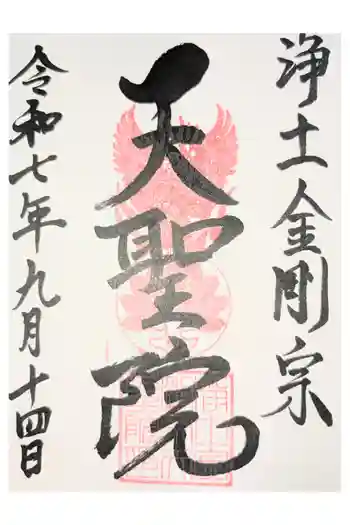 浄土金剛宗
天聖院
令和七年九月十四日